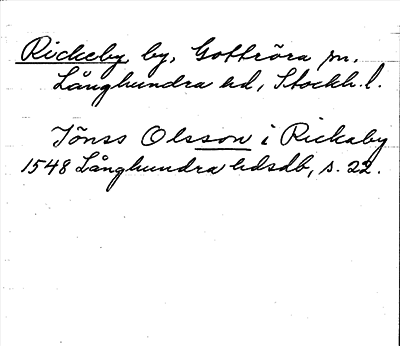 Rickeby, by, Gottröra sn.
Långhundra hd, Stockh. l.
Jönss Olsson i Rickaby
1548 Långhundra hdsdb, s. 22.